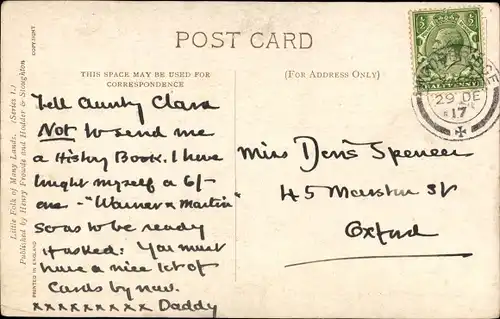 POST CARD
THIS SPACE MAY BE USED FOR
CORRESPONDENCE
(For Address Only)
Little Folk of Many Lands. (Series I.)
Published by Henry Frowde and Hodder & Stoughton
COPYRIGHT
PRINTED IN ENGLAND
29 DE
17
Tell Aunty Clara
Not to send me
a History Book. I have
bought myself a 6/-
one - "Warner & Martin"
so as to be ready
if asked: You must
have a nice lot of
Cards by now.
xxxxxxxxx Daddy
Miss Doris Spencer
45 Marston St
Oxford